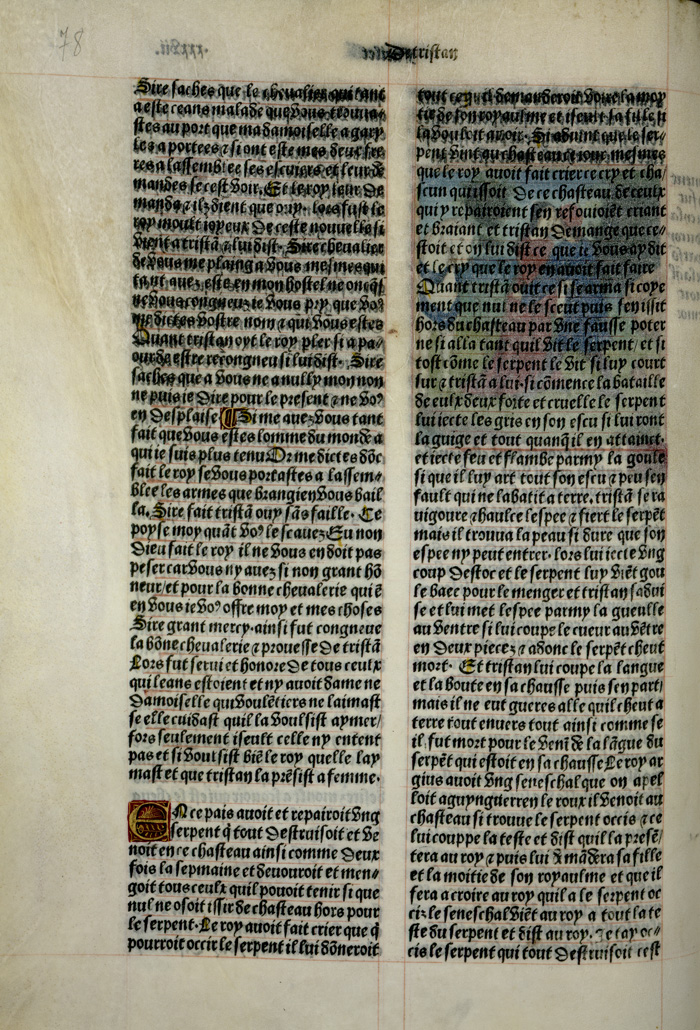 78
De tristan
Sire saches que le cheualier qui tant
a este ceans malade que vous trouua⸗
stes au port que ma damoiselle a gary
les a portees ⁊ si ont este mes deux fre
res a lassemblee ses escuiers et leur de
mandes se cest voir. Et le roy leur de
manda ⁊ ilz dient que ouy. lors fust le
roy moult ioyeux De ceste nouuelle si
vient a tristã ⁊ lui dist. Sire cheualier
de vous me plaing a vous mesmes qui
tant auez este en mon hostel ne oncq̃s
ne vous congneuz ie vous pry que vo⁹
me dictes vostre nom ⁊ qui vous estes
Quant tristan oyt le roy pler si a pa⸗
our da estre recongneu si lui dist. Sire
saches que a vous ne a nully mon nom
ne puis ie Dire pour le present ⁊ ne vo⁹
en Desplaise Si me auez vous tant
fait que vous estes lomme du monde a
qui ie suis plus tenu Or me dictes dõc
fait le roy se vous portastes a lassem⸗
blee les armes que brangien vous bail
la. Sire fait tristã ouy sãs faille. Ce
poyse moy quãt vo⁹ le scauez. Eu non
Dieu fait le roy il ne vous en doit pas
peser car vous ny auez si non grant hõ
neur/et pour la bonne cheualerie qui ẽ
en vous ie vo⁹ offre moy et mes choses
Sire grant mercy. ainsi fut congneue
la bõne cheualerie ⁊ prouesse De tristã
Lors fut serui et honore De tous ceulx
qui leans estoient et ny auoit dame ne
Damoiselle qui voulẽtiers ne laimast
se elle cuidast quil la voulsist aymer/
fors seulement iseult celle ny entent
pas et si voulsist biẽ le roy quelle lay
mast et que tristan la prẽsist a femme.
EN ce pais auoit et repairoit vng
serpent q̃ tout Destruisoit et ve
noit en ce chasteau ainsi comme Deux
fois la sepmaine et deuouroit et men⸗
goit tous ceulx quil pouoit tenir si que
nul ne osoit issir de chasteau hors pour
le serpent. Le roy auoit fait crier que q̃
pourroit occir le serpent il lui dõneroit
tout ce qu il demanderoit voire la moy
tie de son royaulme et iseult sa fille sil
la vouloit auoir. Si aduint que le ser⸗
pent vint au chasteau ce iour mesmes
que le roy auoit fait crier ce cry et cha/
scun qui issoit De ce chasteau de ceulx
qui y repairoient sen refouioiẽt criant
et braiant et tristan Demange que ce⸗
stoit et on lui dist ce que ie vous ay dit
et le cry que le roy en auoit fait faire
Quant tristã ouit ce si se arma si coye
ment que nul ne le sceut puis sen issit
hors du chasteau par vne fausse poter
ne si alla tant quil vit le serpent/et si
tost cõme le serpent le vit si luy court
sur ⁊ tristã a lui. si cõmence la bataille
de eulx deux forte et cruelle le serpent
lui iecte les gris en son escu si lui ront
la guige et tout quanq̃ il en attainct.
et iecte feu et flambe parmy la goule
si que il luy art tout son escu ⁊ peu sen
fault qui ne labatit a terre. tristã se ra
uigoure ⁊ haulce lespee ⁊ fiert le serpẽt
mais il trouua la peau si dure que son
espee ny peut entrer. lors lui iecte vng
coup Destoc et le serpent luy viẽt gou
le baee pour le menger et tristan sadui
se et lui met lespee parmy la gueulle
au ventre si lui coupe le cueur au vẽtre
en Deux pieces ⁊ adonc le serpẽt cheut
mort. Et tristan lui coupe la langue
et la boute en sa chausse puis sen part/
mais il ne eut gueres alle quil cheut a
terre tout enuers tout ainsi comme se
il fut mort pour le veni̅ de la lãgue du
serpẽt qui estoit en sa chausse Le roy ar
gius auoit vng seneschal que on apel
loit aguynguerren le roux il venoit au
chasteau si trouue le serpent occis ⁊ ce
lui couppe la teste et dist quil la presẽ/
tera au roy ⁊ puis lui dmãdera sa fille
et la moitie de son royaulme et que il
fera acroire au roy quil a le serpent oc
cis le seneschal viẽt au roy a tout la te
ste du serpent et dist au roy. Ie lay oc⸗
cis le serpent qui tout Destruisoit cest